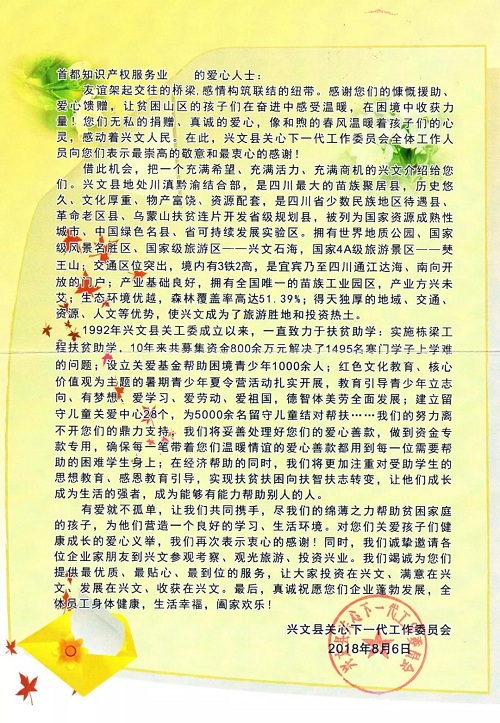 首都知识产权服务业 的爱心人士:
友谊架起交往的桥梁,感情构筑联结的纽带。感谢您们的慷慨援助、
爱心馈赠，让贫困山区的孩子们在奋进中感受温暖，在困境中收获力
量！您们无私的捐赠、真诚的爱心，像和煦的春风温暖着孩子们的心
灵，感动着兴文人民。在此，兴文县关心下一代工作委员会全体工作人
员向您们表示最崇高的敬意和最衷心的感谢！
借此机会，把一个充满希望、充满活力、充满商机的兴文介绍给您
们。兴文县地处川滇黔渝结合部，是四川最大的苗族聚居县，历史悠
久、文化厚重、物产富饶、资源配套，是四川省少数民族地区待遇县、
革命老区县、乌蒙山扶贫连片开发省级规划县，被列为国家资源成熟性
城市、中国绿色名县、省可持续发展实验区。拥有世界地质公园、国家
级风景名胜区、国家级旅游区——兴文石海，国家4A级旅游景区——僰
王山；交通区位突出，境内有3铁2高，是宜宾乃至四川通江达海、南向开
放的门户；产业基础良好，拥有全国唯一的苗族工业园区，产业方兴未
艾；生态环境优越，森林覆盖率高达51.39%；得天独厚的地域、交通、
资源、人文等优势，使兴文成为了旅游胜地和投资热土。
1992年兴文县关工委成立以来，一直致力于扶贫助学：实施栋梁工
程扶贫助学，10年来共募集资金800余万元解决了1495名寒门学子上学难
的问题；设立关爱基金帮助困境青少年1000余人；红色文化教育、核心
价值观为主题的暑期青少年夏令营活动扎实开展，教育引导青少年立志
向、有梦想、爱学习、爱劳动、爱祖国，德智体美劳全面发展；建立留
守儿童关爱中心28个，为5000余名留守儿童结对帮扶……我们的努力离
不开您们的鼎力支持，我们将妥善处理好您们的爱心善款，做到资金专
款专用，确保每一笔带着您们温暖情谊的爱心善款都用到每一位需要帮
助的困难学生身上；在经济帮助的同时，我们将更加注重对受助学生的
思想教育、感恩教育引导，实现扶贫扶困向扶智扶志转变，让他们成长
成为生活的强者，成为能够有能力帮助别人的人。
有爱就不孤单，让我们共同携手，尽我们的绵薄之力帮助贫困家庭
的孩子，为他们营造一个良好的学习、生活环境。对您们关爱孩子们健
康成长的爱心义举，我们再次表示衷心的感谢！同时，我们诚挚邀请各
位企业家朋友到兴文参观考察、观光旅游、投资兴业。我们竭诚为您们
提供最优质、最贴心、最到位的服务，让大家投资在兴文、满意在兴
文、发展在兴文、收获在兴文。最后，真诚祝愿您们企业蓬勃发展，全
体员工身体健康，生活幸福，阖家欢乐！
兴文县关心下一代工作委员会
2018年8月6日